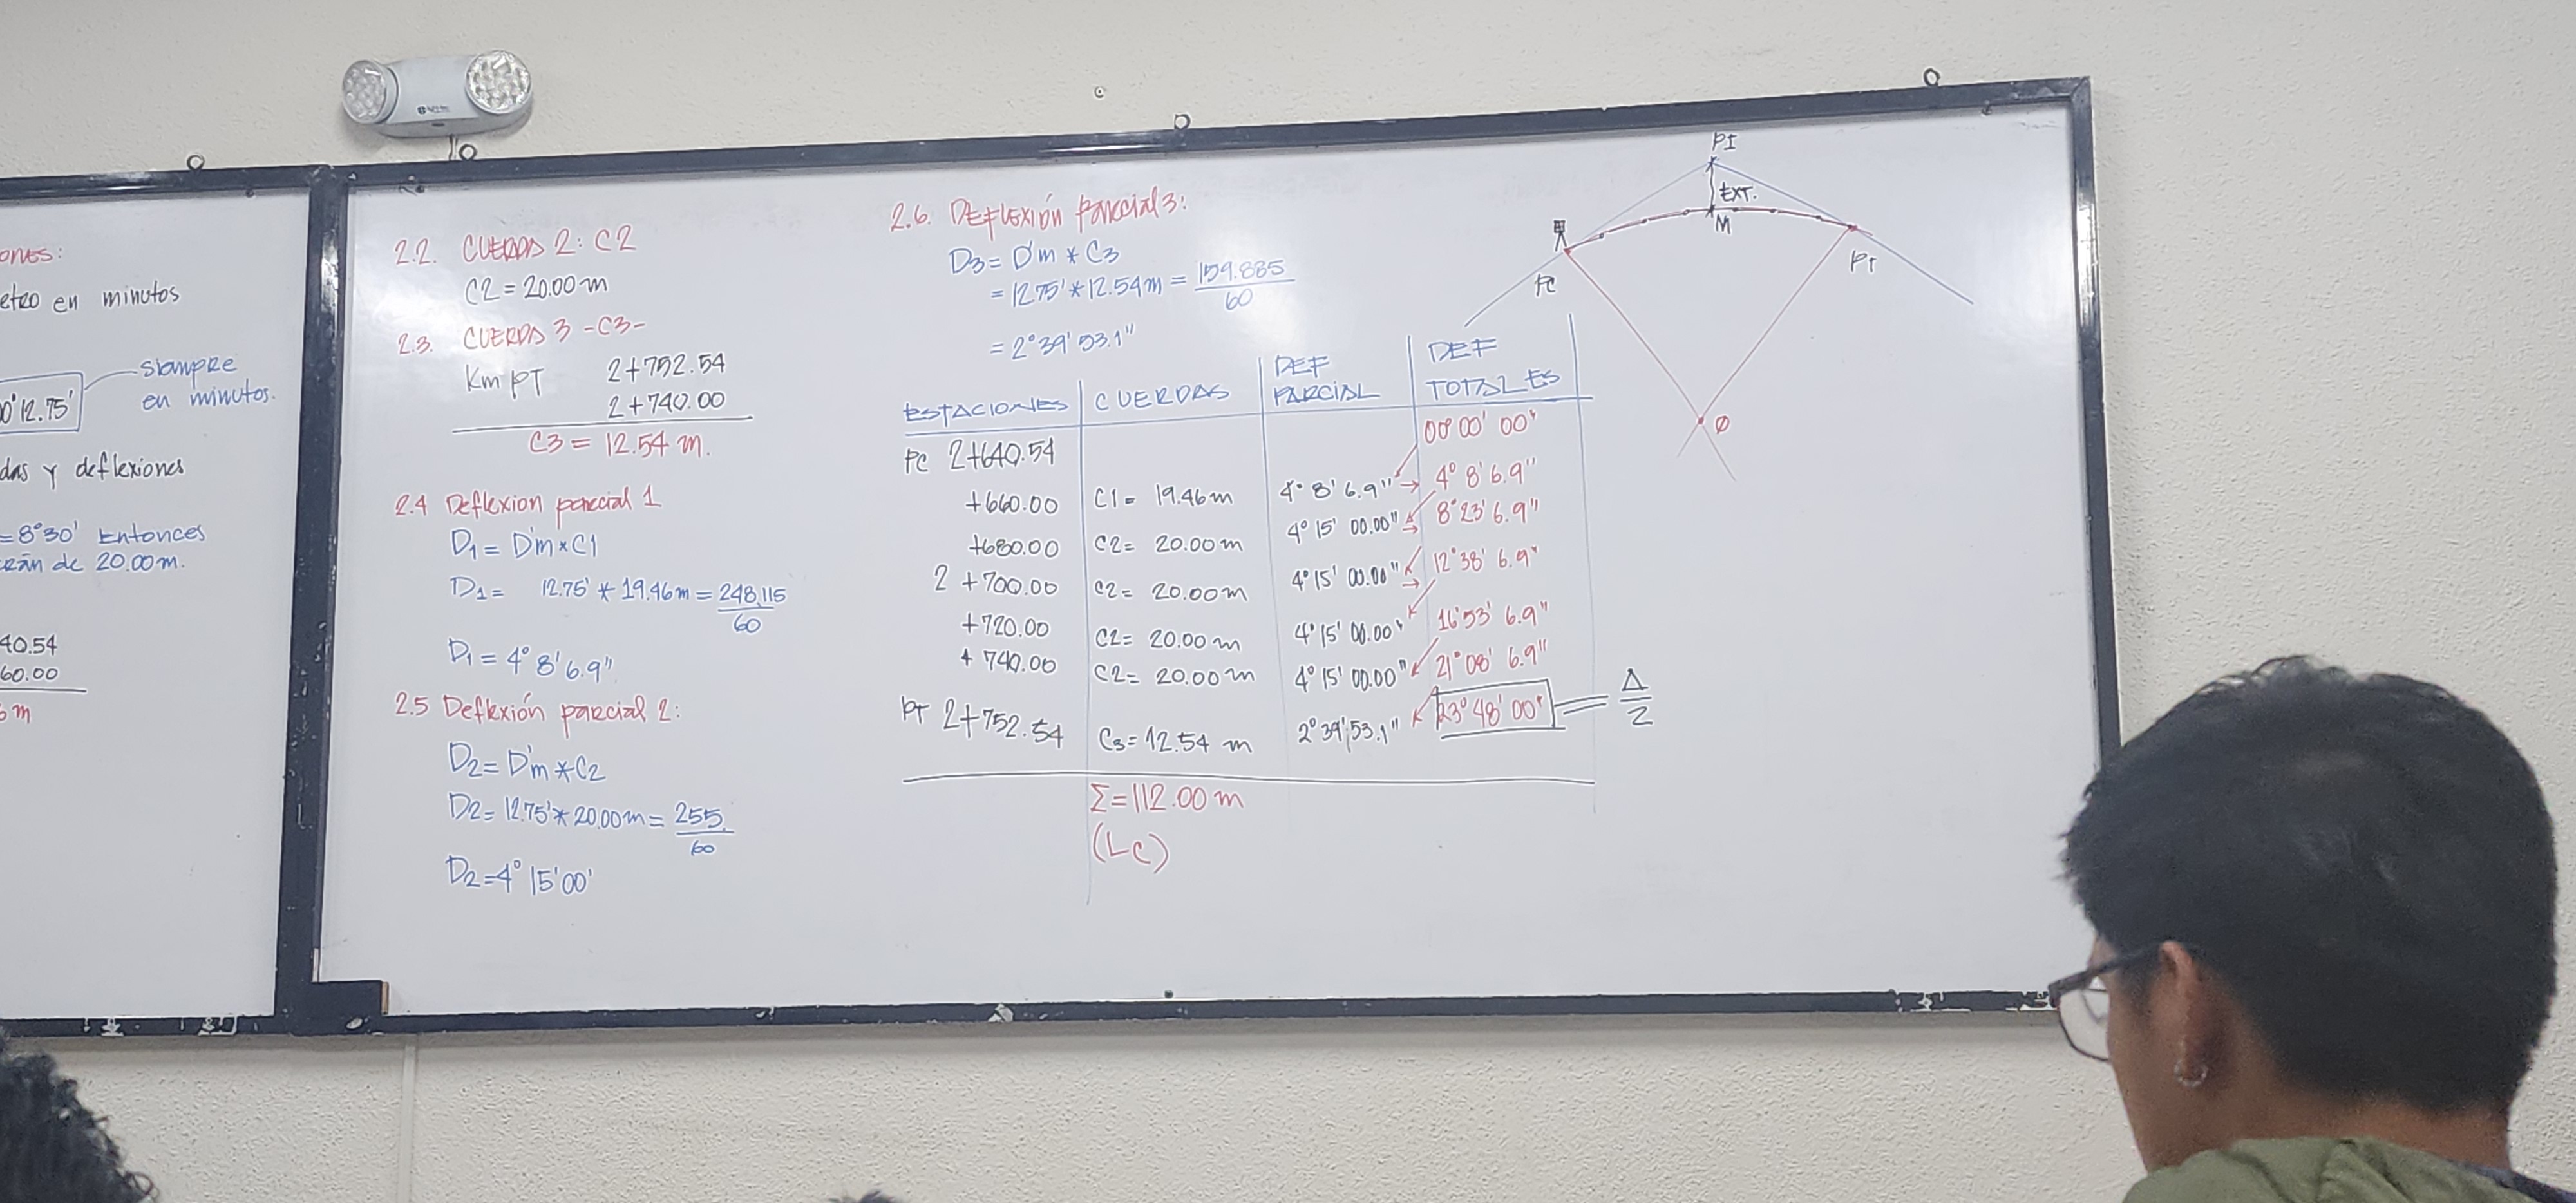 ones:
etro en minutos
0°12.75'
siempre
en minutos.
das y deflexiones
=8°30' Entonces
rán de 20.00m.
40.54
60.00
m
2.2. CUERDA 2: C2
C2 = 20.00 m
2.3. CUERDA 3 -C3-
Km PT 2+752.54
2+740.00
C3 = 12.54 m.
2.4 Deflexion parcial 1
D1 = D'm*C1
D1 = 12.75' * 19.46m = 248.115
60
D1 = 4° 8' 6.9"
2.5 Deflexión parcial 2:
D2 = D'm*C2
D2 = 12.75'*20.00m = 255.
60
D2=4° 15'00'
2.6. DEFLEXIÓN Parcial 3:
D3 = D'm * C3
= 12.75' * 12.54m = 159.885
60
= 2°39' 53.1"
ESTACIONES CUERDAS DEF PARCIAL DEF TOTALES
00° 00' 00"
PC 2+640.54
+660.00 C1 = 19.46m 4° 8' 6.9" → 4° 8' 6.9"
+680.00 C2= 20.00 m 4° 15' 00.00" → 8°23' 6.9"
2 +700.00 C2= 20.00m 4°15' 00.00" → 12°38' 6.9"
+720.00 C2= 20.00 m 4°15' 00.00" 16°53' 6.9"
+ 740.00 C2= 20.00 m 4°15' 00.00" 21°08' 6.9"
PT 2+752.54 C3=12.54 m 2°39' 53.1" 23° 48' 00" = Δ
2
Σ=112.00 m
(Lc)
PI
EXT.
M
PC
PT
Ø